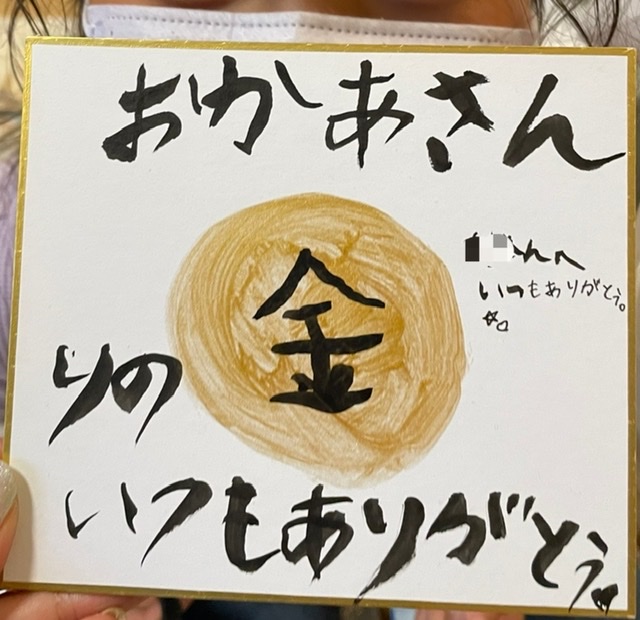 おかあさん
金
んへ
いつもありがとう。
りの
いつもありがとう。